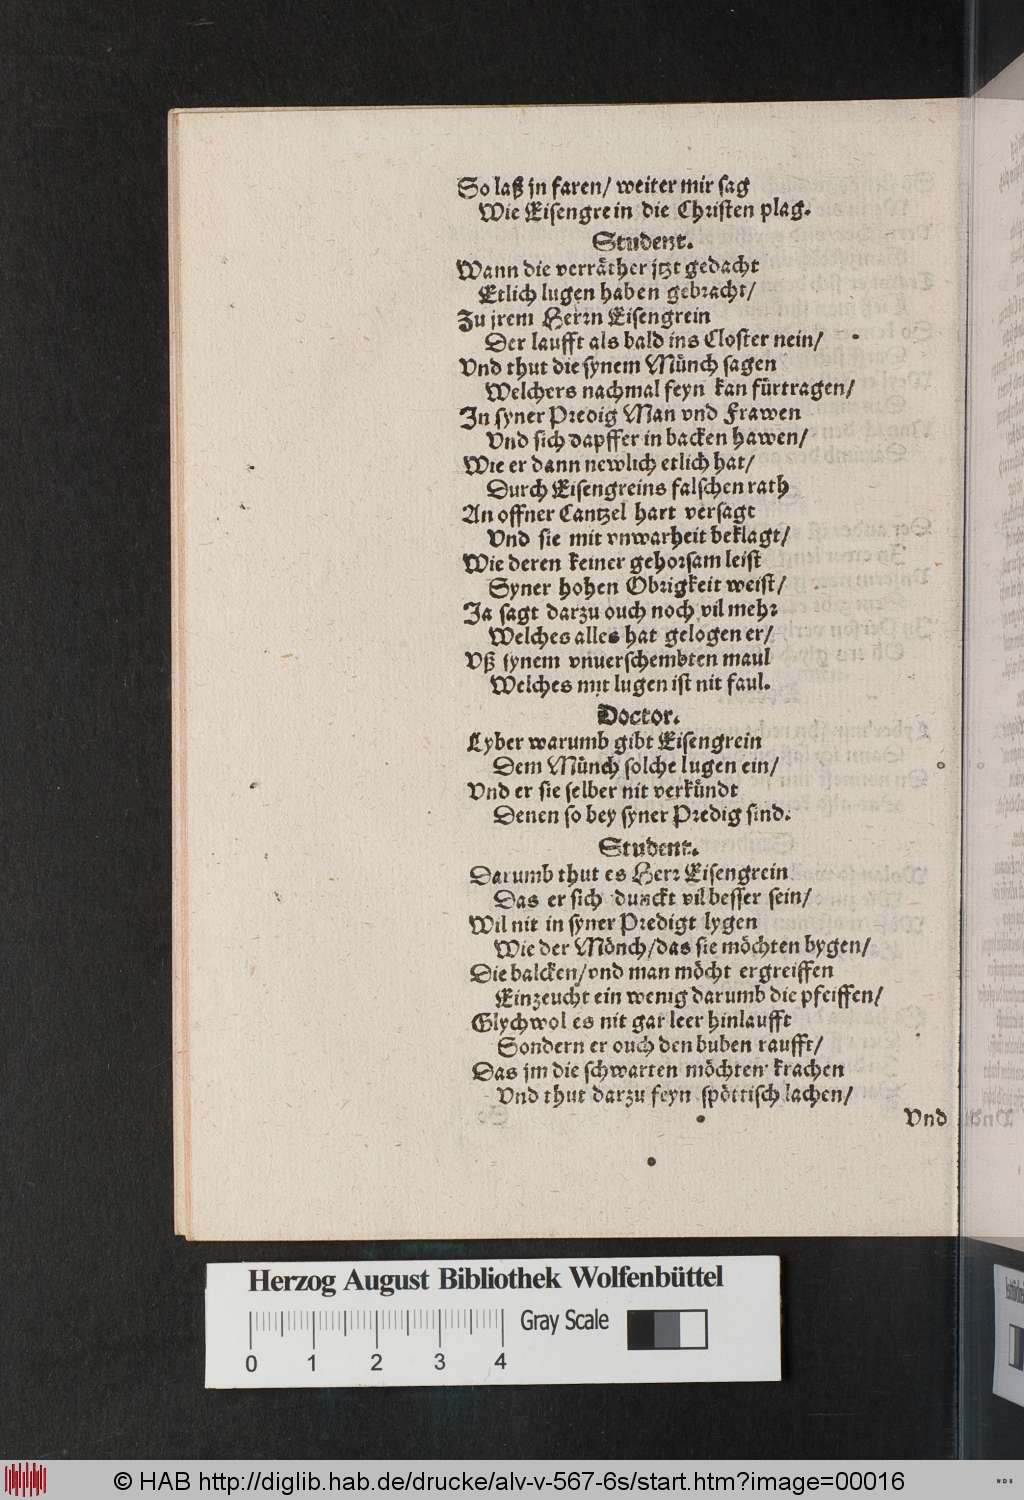 So laß jn faren/ weiter mir sag
Wie Eisengrein die Christen plag.
Student.
Wann die verräther jtzt gedacht
Etlich lugen haben gebracht/
Zu jrem Herrn Eisengrein
Der laufft als bald ins Closter nein/
Vnd thut die synem Münch sagen
Welchers nachmal feyn kan fürtragen/
In syner Predig Man vnd Frawen
Vnd sich dapffer in backen hawen/
Wie er dann newlich etlich hat/
Durch Eisengreins falschen rath
An offner Cantzel hart versagt
Vnd sie mit vnwarheit beklagt/
Wie deren keiner gehorsam leist
Syner hohen Obrigkeit weist/
Ja sagt darzu ouch noch vil mehr
Welches alles hat gelogen er/
Vß synem vnuerschembten maul
Welches mit lugen ist nit faul.
Doctor.
Lyber warumb gibt Eisengrein
Dem Münch solche lugen ein/
Vnd er sie selber nit verkündt
Denen so bey syner Predig sind.
Student.
Darumb thut es Herr Eisengrein
Das er sich dunckt vil besser sein/
Wil nit in syner Predigt lygen
Wie der Mönch/das sie möchten bygen/
Die balcken/vnd man möcht ergreiffen
Einzeucht ein wenig darumb die pfeiffen/
Glychwol es nit gar leer hinlaufft
Sondern er ouch den buben raufft/
Das jm die schwarten möchten krachen
Vnd thut darzu feyn spöttisch lachen/
Vnd
Herzog August Bibliothek Wolfenbüttel
Gray Scale
0 1 2 3 4
© HAB http://diglib.hab.de/drucke/alv-v-567-6s/start.htm?image=00016